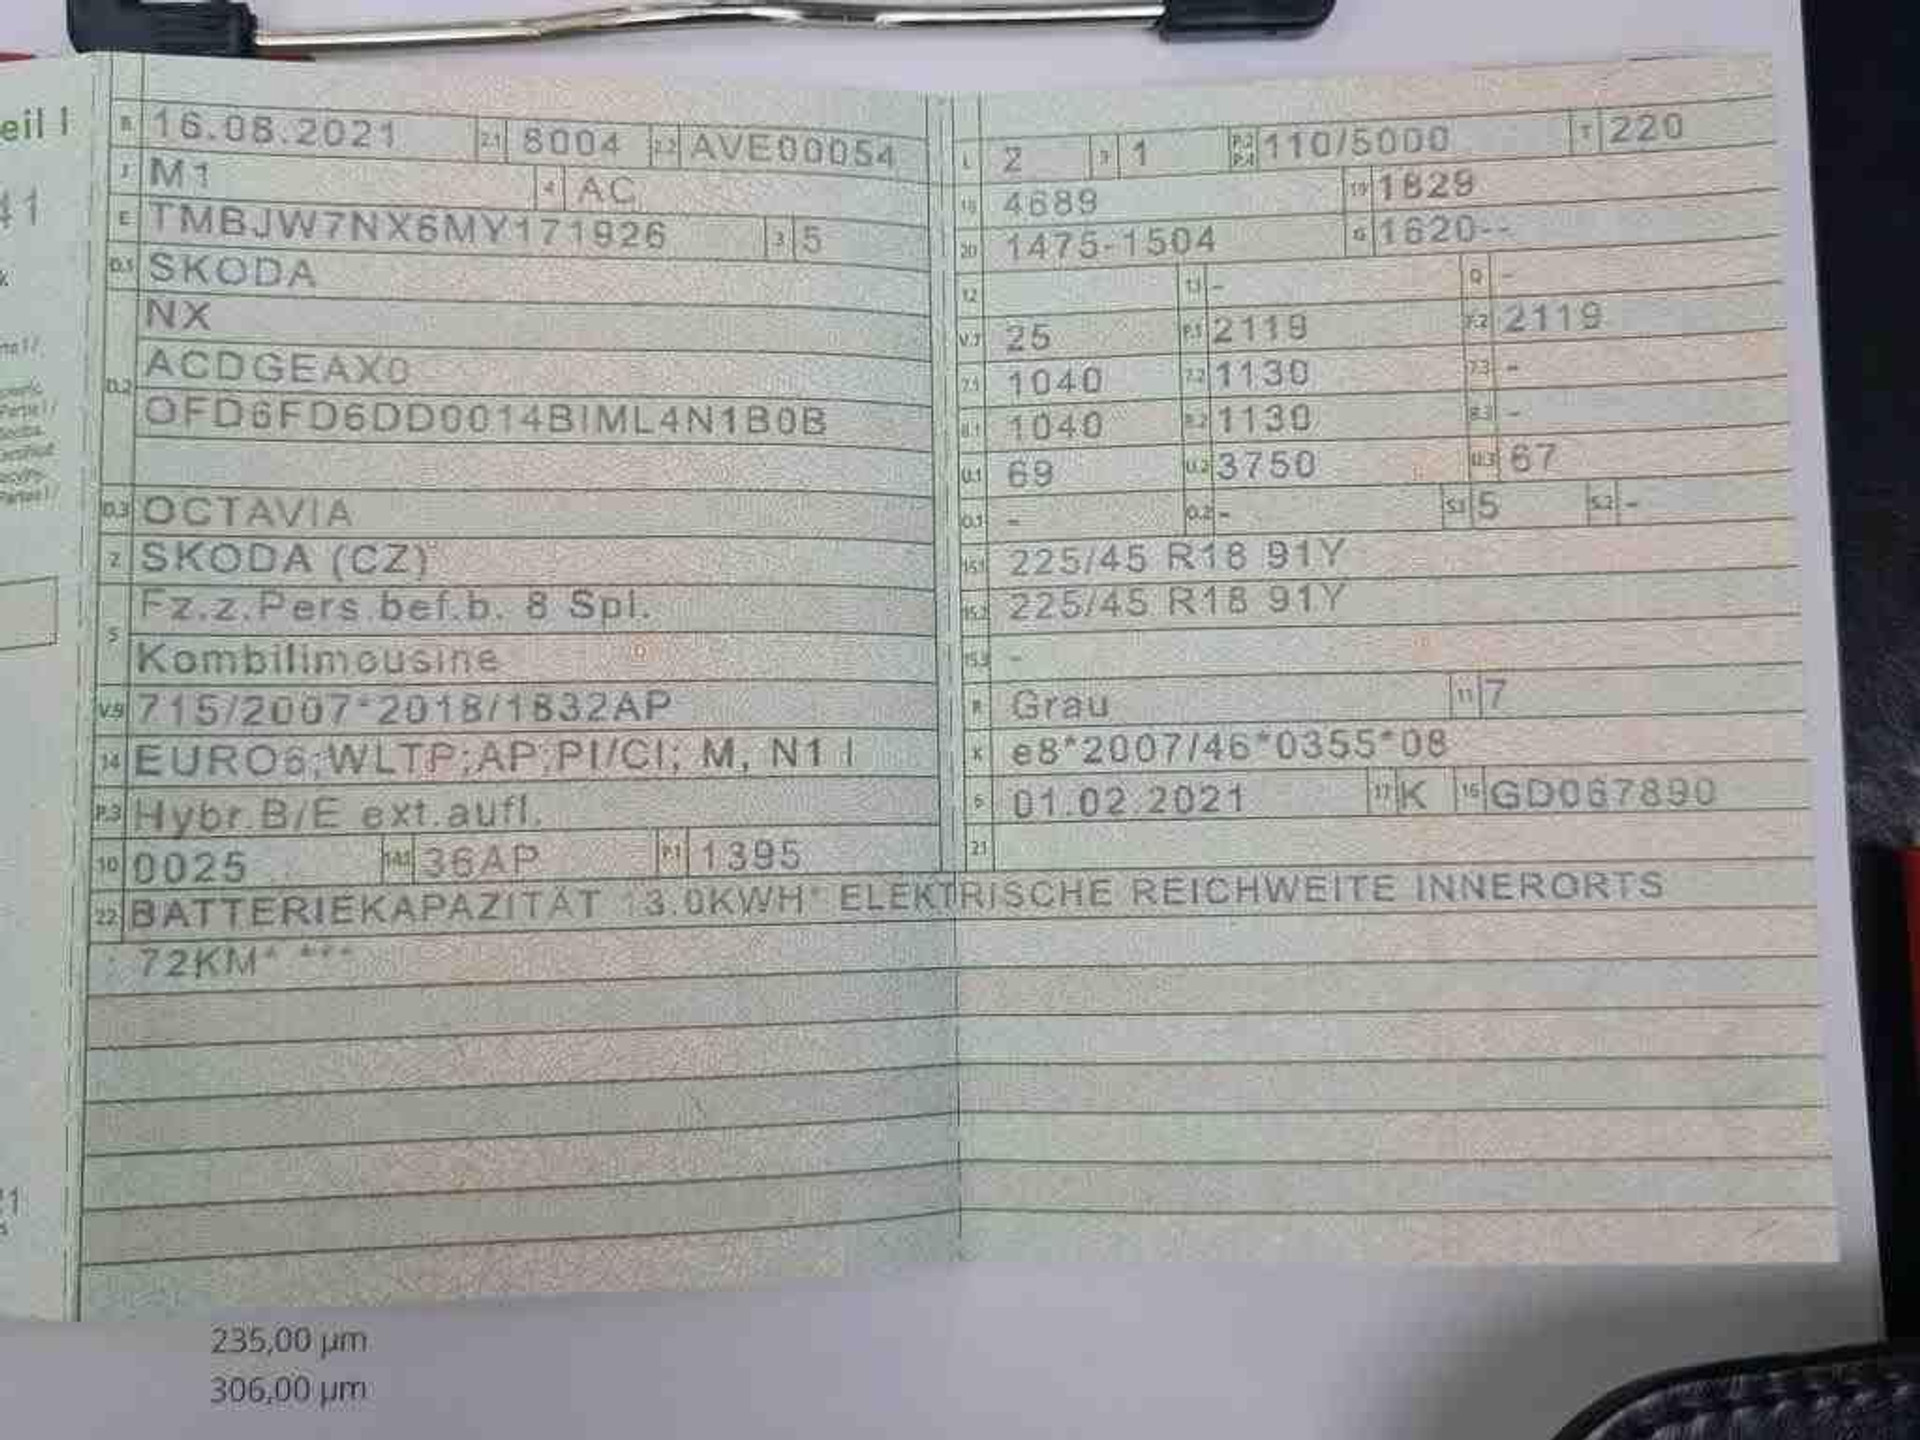 eil I
B 16.08.2021 2.1 8004 2.2 AVE00054
J M1 4 AC
E TMBJW7NX6MY171926 3 5
D.1 SKODA
NX
D.2 ACDGEAX0
OFD6FD6DD0014BIML4N1B0B
D.3 OCTAVIA
2 SKODA (CZ)
5 Fz.z.Pers.bef.b. 8 Spl.
Kombilimousine
V.9 715/2007*2018/1832AP
14 EURO6;WLTP;AP;PI/CI; M, N1 I
P.3 Hybr.B/E ext.aufl.
10 0025 14.1 36AP P.1 1395
L 2 9 1 P.2 P.4 110/5000 T 220
18 4689 19 1829
20 1475-1504 G 1620--
12 13 - Q -
V.7 25 F.1 2119 F.2 2119
7.1 1040 7.2 1130 7.3 -
8.1 1040 8.2 1130 8.3 -
U.1 69 U.2 3750 U.3 67
O.1 - O.2 - S.1 5 S.2 -
15.1 225/45 R18 91Y
15.2 225/45 R18 91Y
15.3 -
R Grau 11 7
K e8*2007/46*0355*08
6 01.02.2021 17 K 16 GD067890
21
22 BATTERIEKAPAZITÄT 13.0KWH* ELEKTRISCHE REICHWEITE INNERORTS
72KM* ***
235,00 µm
306,00 µm